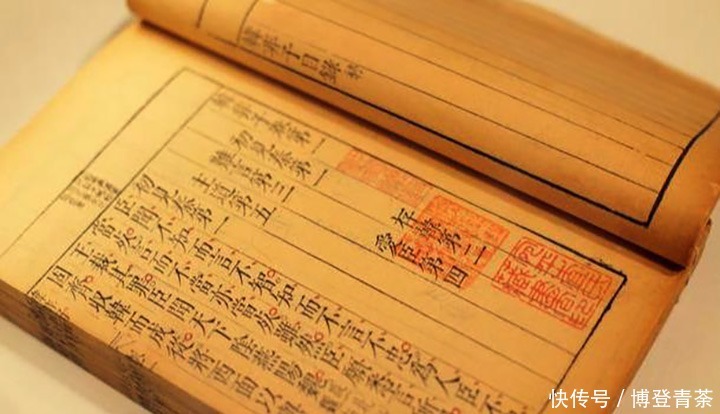 韓非子目錄 終
韓非子卷第一
初見秦第一 存韓第二
難言第三 愛臣第四
主道第五
初見秦第一
臣聞不知而言不智知而不言不忠爲人臣不
當死言而不當亦當死雖然臣願悉言
王裁其罪臣聞天下陰燕陽魏
固齊收韓而成從將西面以
快传号 / 博登青茶